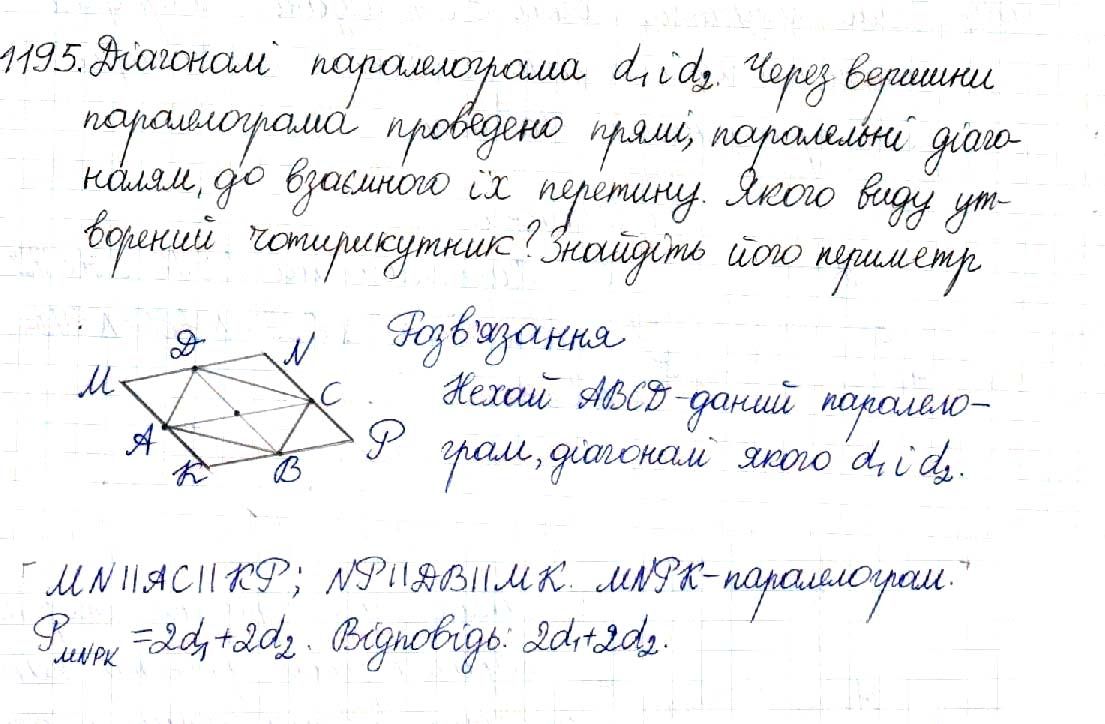 1195. Діагоналі паралелограма d₁ і d₂. Через вершини
паралелограма проведено прямі, паралельні діаго-
налям, до взаємного їх перетину. Якого виду ут-
ворений чотирикутник? Знайдіть його периметр
Розв'язання
D N
M
C
A P
K B
Нехай ABCD - даний паралело-
грам, діагоналі якого d₁ і d₂.
MN || AC || KP; NP || DB || MK. MNPK - паралелограм.
P_MNPK = 2d₁ + 2d₂. Відповідь: 2d₁ + 2d₂.